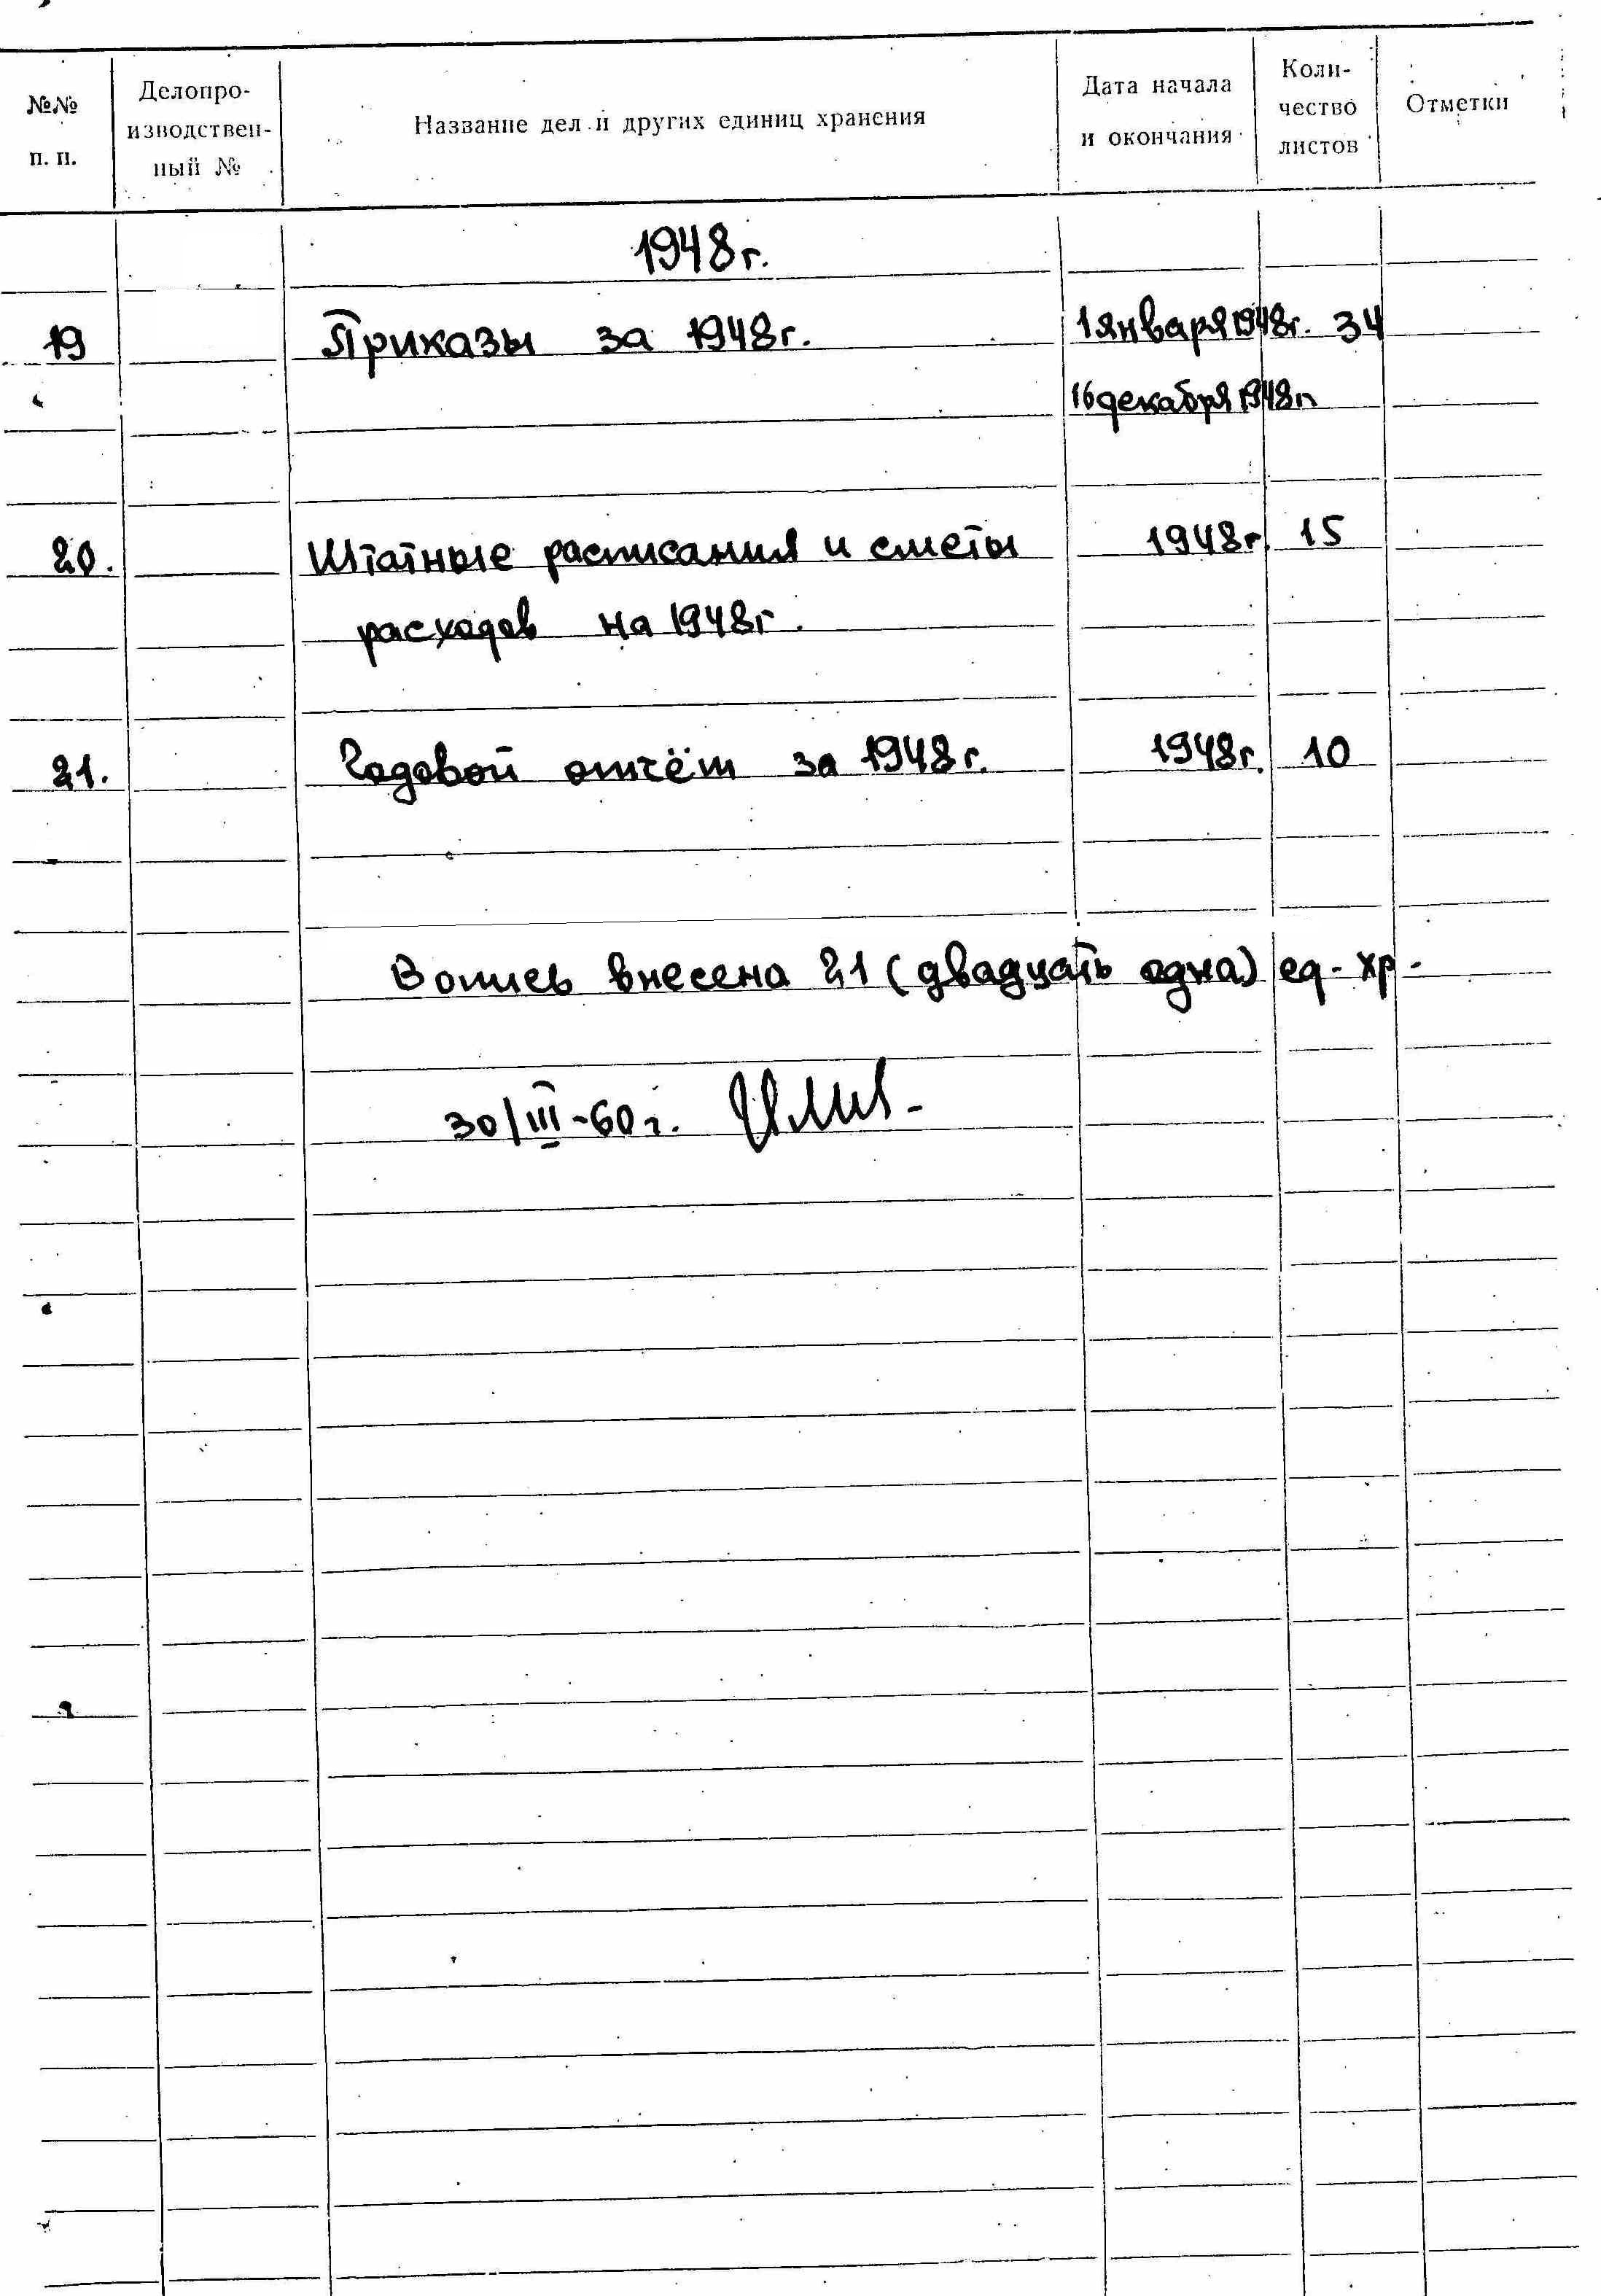 №№ п. п.
Делопро-
изводствен-
ный №
Название дел и других единиц хранения
Дата начала
и окончания
Коли-
чество
листов
Отметки
1948 г.
19 Приказы за 1948 г. 1 января 1948 г. 34
16 декабря 1948 г.
20. Штатные расписания и сметы 1948 г. 15
расходов на 1948 г.
21. Годовой отчёт за 1948 г. 1948 г. 10
В опись внесена 21 (двадцать одна) ед. хр.
30/III-60 г.